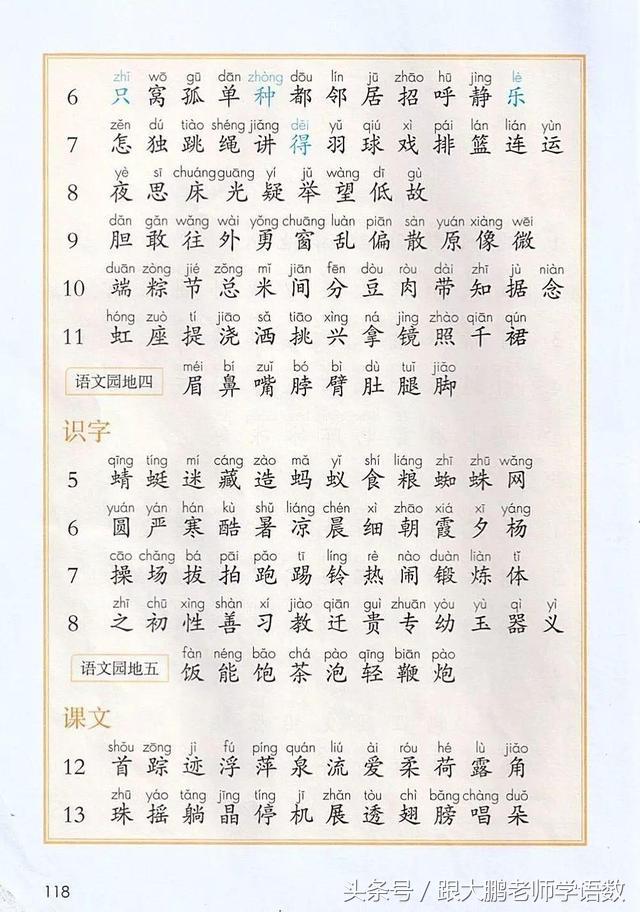 zhī wō gū dān zhòng dōu lín jū zhāo hū jìng lè
6 只 窝 孤 单 种 都 邻 居 招 呼 静 乐
zěn dú tiào shéng jiǎng děi yǔ qiú xì pái lán lián yùn
7 怎 独 跳 绳 讲 得 羽 球 戏 排 篮 连 运
yè sī chuáng guāng yí jǔ wàng dī gù
8 夜 思 床 光 疑 举 望 低 故
dǎn gǎn wǎng wài yǒng chuāng luàn piān sàn yuán xiàng wēi
9 胆 敢 往 外 勇 窗 乱 偏 散 原 像 微
duān zòng jié zǒng mǐ jiān fēn dòu ròu dài zhī jù niàn
10 端 粽 节 总 米 间 分 豆 肉 带 知 据 念
hóng zuò tí jiāo sǎ tiāo xìng ná jìng zhào qiān qún
11 虹 座 提 浇 洒 挑 兴 拿 镜 照 千 裙
méi bí zuǐ bó bì dù tuǐ jiǎo
语文园地四 眉 鼻 嘴 脖 臂 肚 腿 脚
识字
qīng tíng mí cáng zào mǎ yǐ shí liáng zhī zhū wǎng
5 蜻 蜓 迷 藏 造 蚂 蚁 食 粮 蜘 蛛 网
yuán yán hán kù shǔ liáng chén xì zhāo xiá xī yáng
6 圆 严 寒 酷 暑 凉 晨 细 朝 霞 夕 杨
cāo chǎng bá pāi pǎo tī líng rè nào duàn liàn tǐ
7 操 场 拔 拍 跑 踢 铃 热 闹 锻 炼 体
zhī chū xìng shàn xí jiào qiān guì zhuān yòu yù qì yì
8 之 初 性 善 习 教 迁 贵 专 幼 玉 器 义
fàn néng bǎo chá pào qīng biān pào
语文园地五 饭 能 饱 茶 泡 轻 鞭 炮
课文
shǒu zōng jì fú píng quán liú ài róu hé lù jiǎo
12 首 踪 迹 浮 萍 泉 流 爱 柔 荷 露 角
zhū yáo tǎng jīng tíng jī zhǎn tòu chì bǎng chàng duǒ
13 珠 摇 躺 晶 停 机 展 透 翅 膀 唱 朵
118
头条号 / 跟大鹏老师学语数